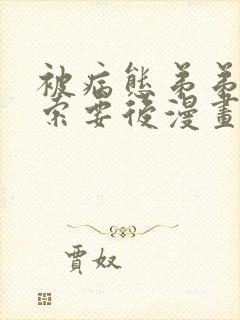 被病態弟弟
索要後漫畫
賈奴